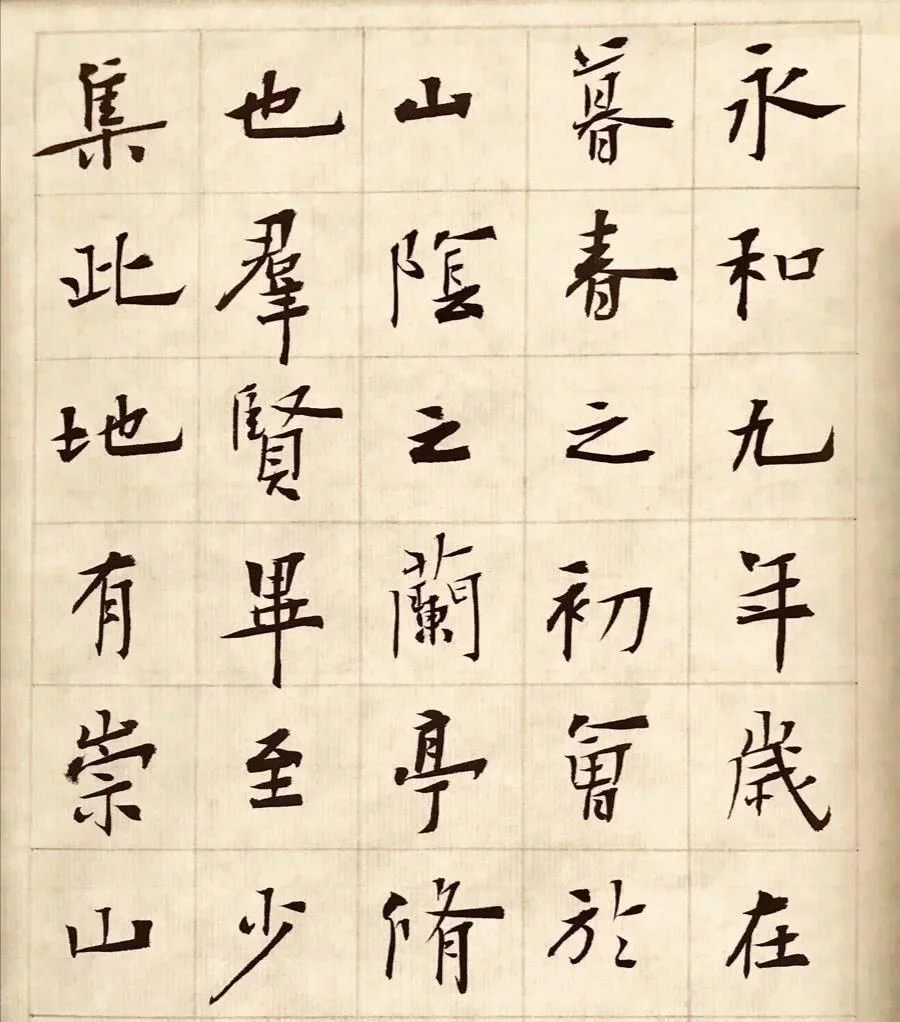 永和九年歲在
暮春之初會於
山陰之蘭亭脩
也羣賢畢至少
集此地有崇山